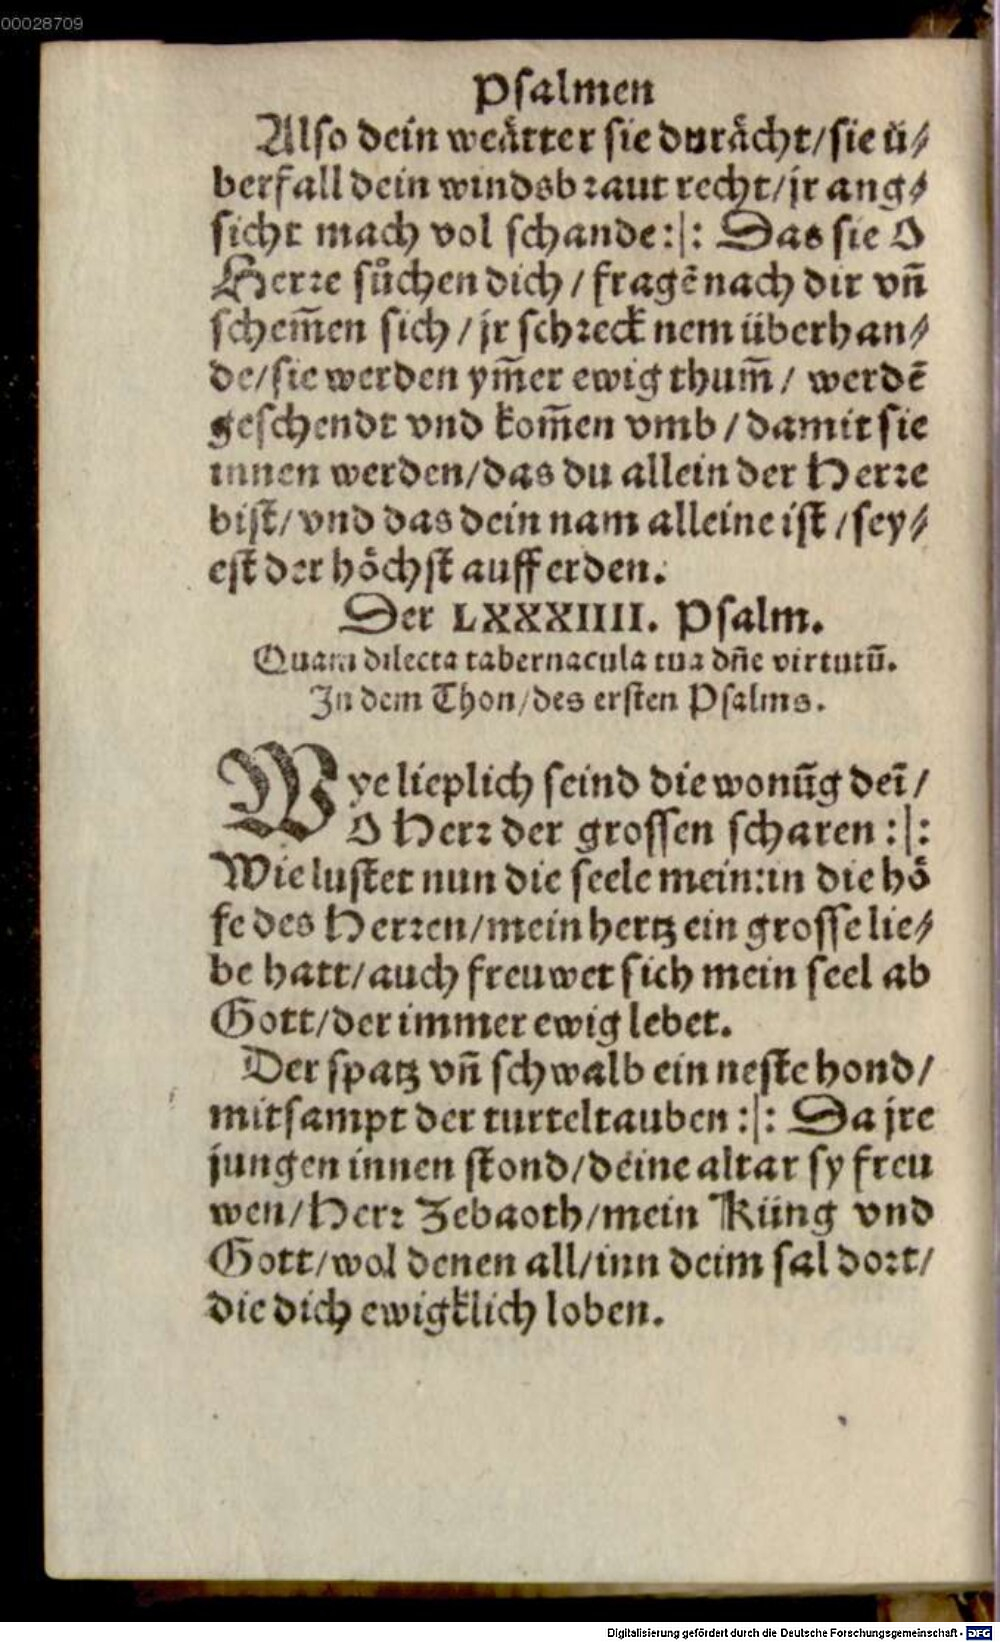 00028709
Psalmen
Also dein weätter sie durächt/sie ü⸗
berfall dein windsbraut recht/jr ang⸗
sicht mach vol schande:|: Das sie O
Herre sůchen dich/fragẽ nach dir vñ
schem̃en sich/jr schreck nem überhan⸗
de/sie werden ym̃er ewig thum̃/ werdẽ
geschendt vnd kom̃en vmb/damit sie
innen werden/das du allein der Herre
bist/vnd das dein nam alleine ist/sey⸗
est der höchst auff erden.
Der LXXXIIII. Psalm.
Quam dilecta tabernacula tua dñe virtutũ.
In dem Thon/des ersten Psalms.
Wye lieplich seind die wonũg deĩ/
O Herr der grossen scharen :|:
Wie lustet nun die seele mein:in die hö
fe des Herren/mein hertz ein grosse lie⸗
be hatt/auch freuwet sich mein seel ab
Gott/der immer ewig lebet.
Der spatz vñ schwalb ein neste hond/
mitsampt der turteltauben :|: Da jre
jungen innen stond/deine altar sy freu
wen/Herr Zebaoth/mein Küng vnd
Gott/wol denen all/inn deim sal dort/
die dich ewigklich loben.
Digitalisierung gefördert durch die Deutsche Forschungsgemeinschaft - DFG